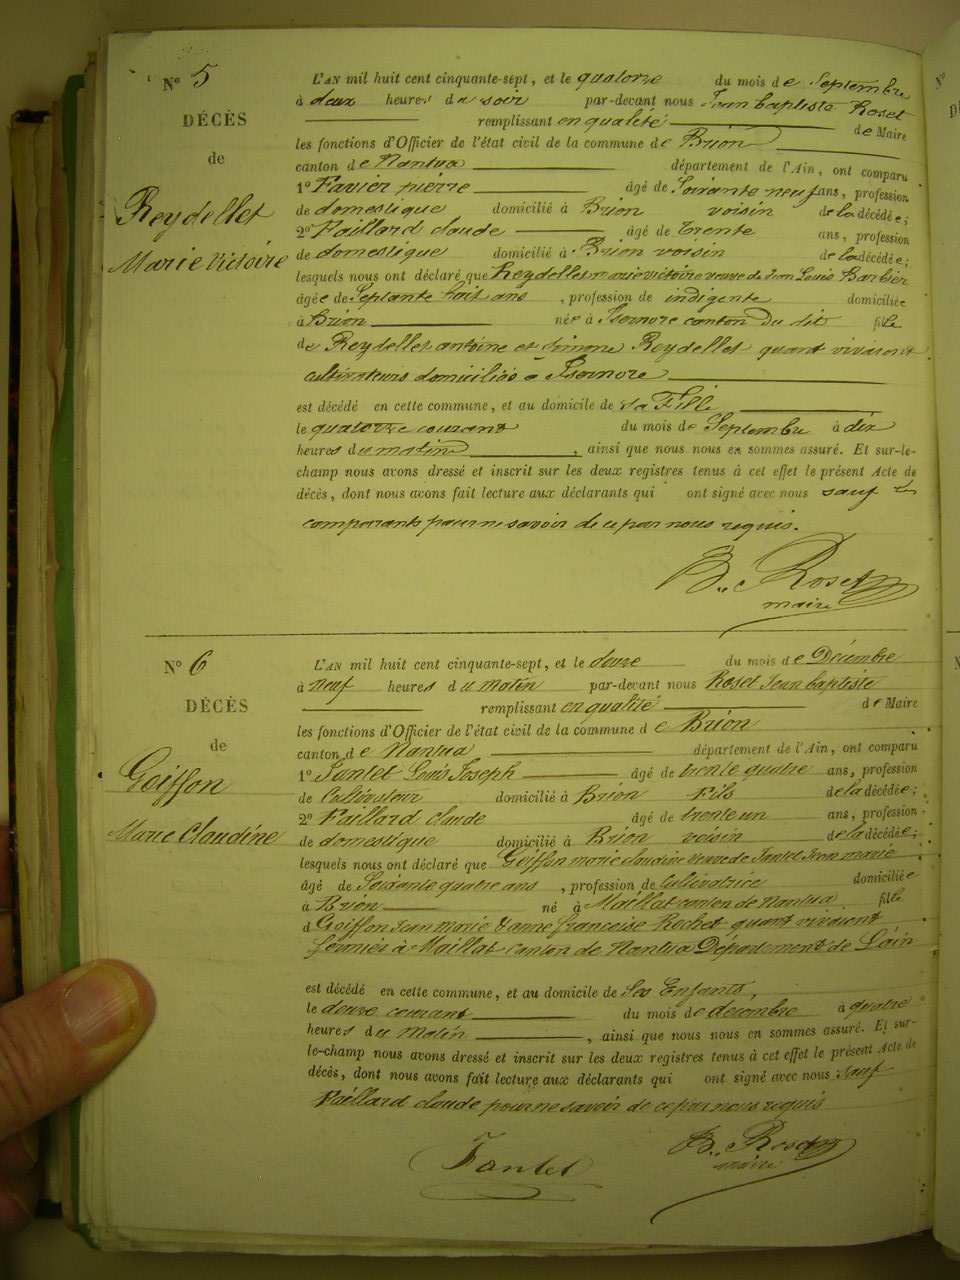 N° 5
DÉCÈS
de
Reydellet
Marie Victoire
L'AN mil huit cent cinquante-sept, et le quatorze du mois de Septembre
à deux heures du soir par-devant nous Jean baptiste Roset
remplissant en qualité de Maire
les fonctions d'Officier de l'état civil de la commune de Brion
canton de Nantua département de l'Ain, ont comparu
1° Favier pierre âgé de Soixante neuf ans, profession
de domestique domicilié à Brion voisin de la décédée;
2° Paillard claude âgé de trente ans, profession
de domestique domicilié à Brion voisin de la décédée;
lesquels nous ont déclaré que Reydellet marie victoire veuve de Jean Louis Barbier
âgée de Septante huit ans, profession de indigente domiciliée
à Brion née à Isernore canton du dit fille
de Reydellet antoine et Simone Reydellet quant vivaient
cultivateurs domiciliés à Isernore
est décédé en cette commune, et au domicile de sa Fille
le quatorze courant du mois de Septembre à dix
heures du matin, ainsi que nous nous en sommes assuré. Et sur-le-
champ nous avons dressé et inscrit sur les deux registres tenus à cet effet le présent Acte de
décès, dont nous avons fait lecture aux déclarants qui ont signé avec nous sauf les
comparants pour ne savoir de ce par nous requis.
B.te Roset
maire
N° 6
DÉCÈS
de
Goiffon
Marie Claudine
L'AN mil huit cent cinquante-sept, et le douze du mois de Décembre
à Neuf heures du matin par-devant nous Roset Jean baptiste
remplissant en qualité de Maire
les fonctions d'Officier de l'état civil de la commune de Brion
canton de Nantua département de l'Ain, ont comparu
1° Tantet Louis Joseph âgé de trente quatre ans, profession
de Cultivateur domicilié à Brion Fils de la décédée;
2° Paillard claude âgé de trente un ans, profession
de domestique domicilié à Brion voisin de la décédée;
lesquels nous ont déclaré que Goiffon marie claudine veuve de Tantet Jean marie
âgé de Soixante quatre ans, profession de Cultivatrice domiciliée
à Brion né à Maillat canton de Nantua fille
d Goiffon Jean marie et anne françoise Rochet quant vivaient
à Maillat canton de Nantua Département de Lain
est décédé en cette commune, et au domicile de Ses Enfants,
le douze courant du mois de décembre à quatre
heures du Matin, ainsi que nous nous en sommes assuré. Et sur-
le-champ nous avons dressé et inscrit sur les deux registres tenus à cet effet le présent Acte de
décès, dont nous avons fait lecture aux déclarants qui ont signé avec nous sauf
Paillard claude pour ne savoir de ce par nous requis
Tantet
B.te Roset
maire